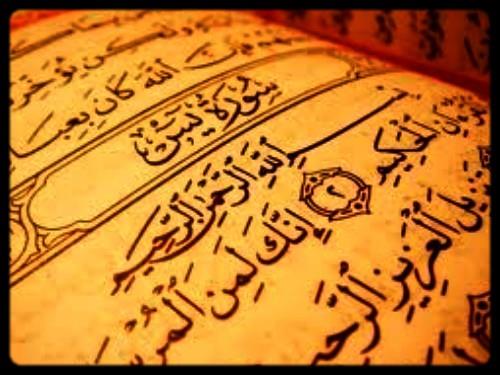 وَلَٰكِن يُؤَخِّرُ
فَإِنَّ ٱللَّهَ كَانَ بِعِبَا
سُورَةُ يسٓ
بِسْمِ ٱللَّهِ ٱلرَّحْمَٰنِ ٱلرَّحِيمِ
ٱلْحَكِيمِ ٢ إِنَّكَ لَمِنَ ٱلْمُرْسَ
يلَ ٱلْعَزِيزِ ٱلرَّحِيمِ